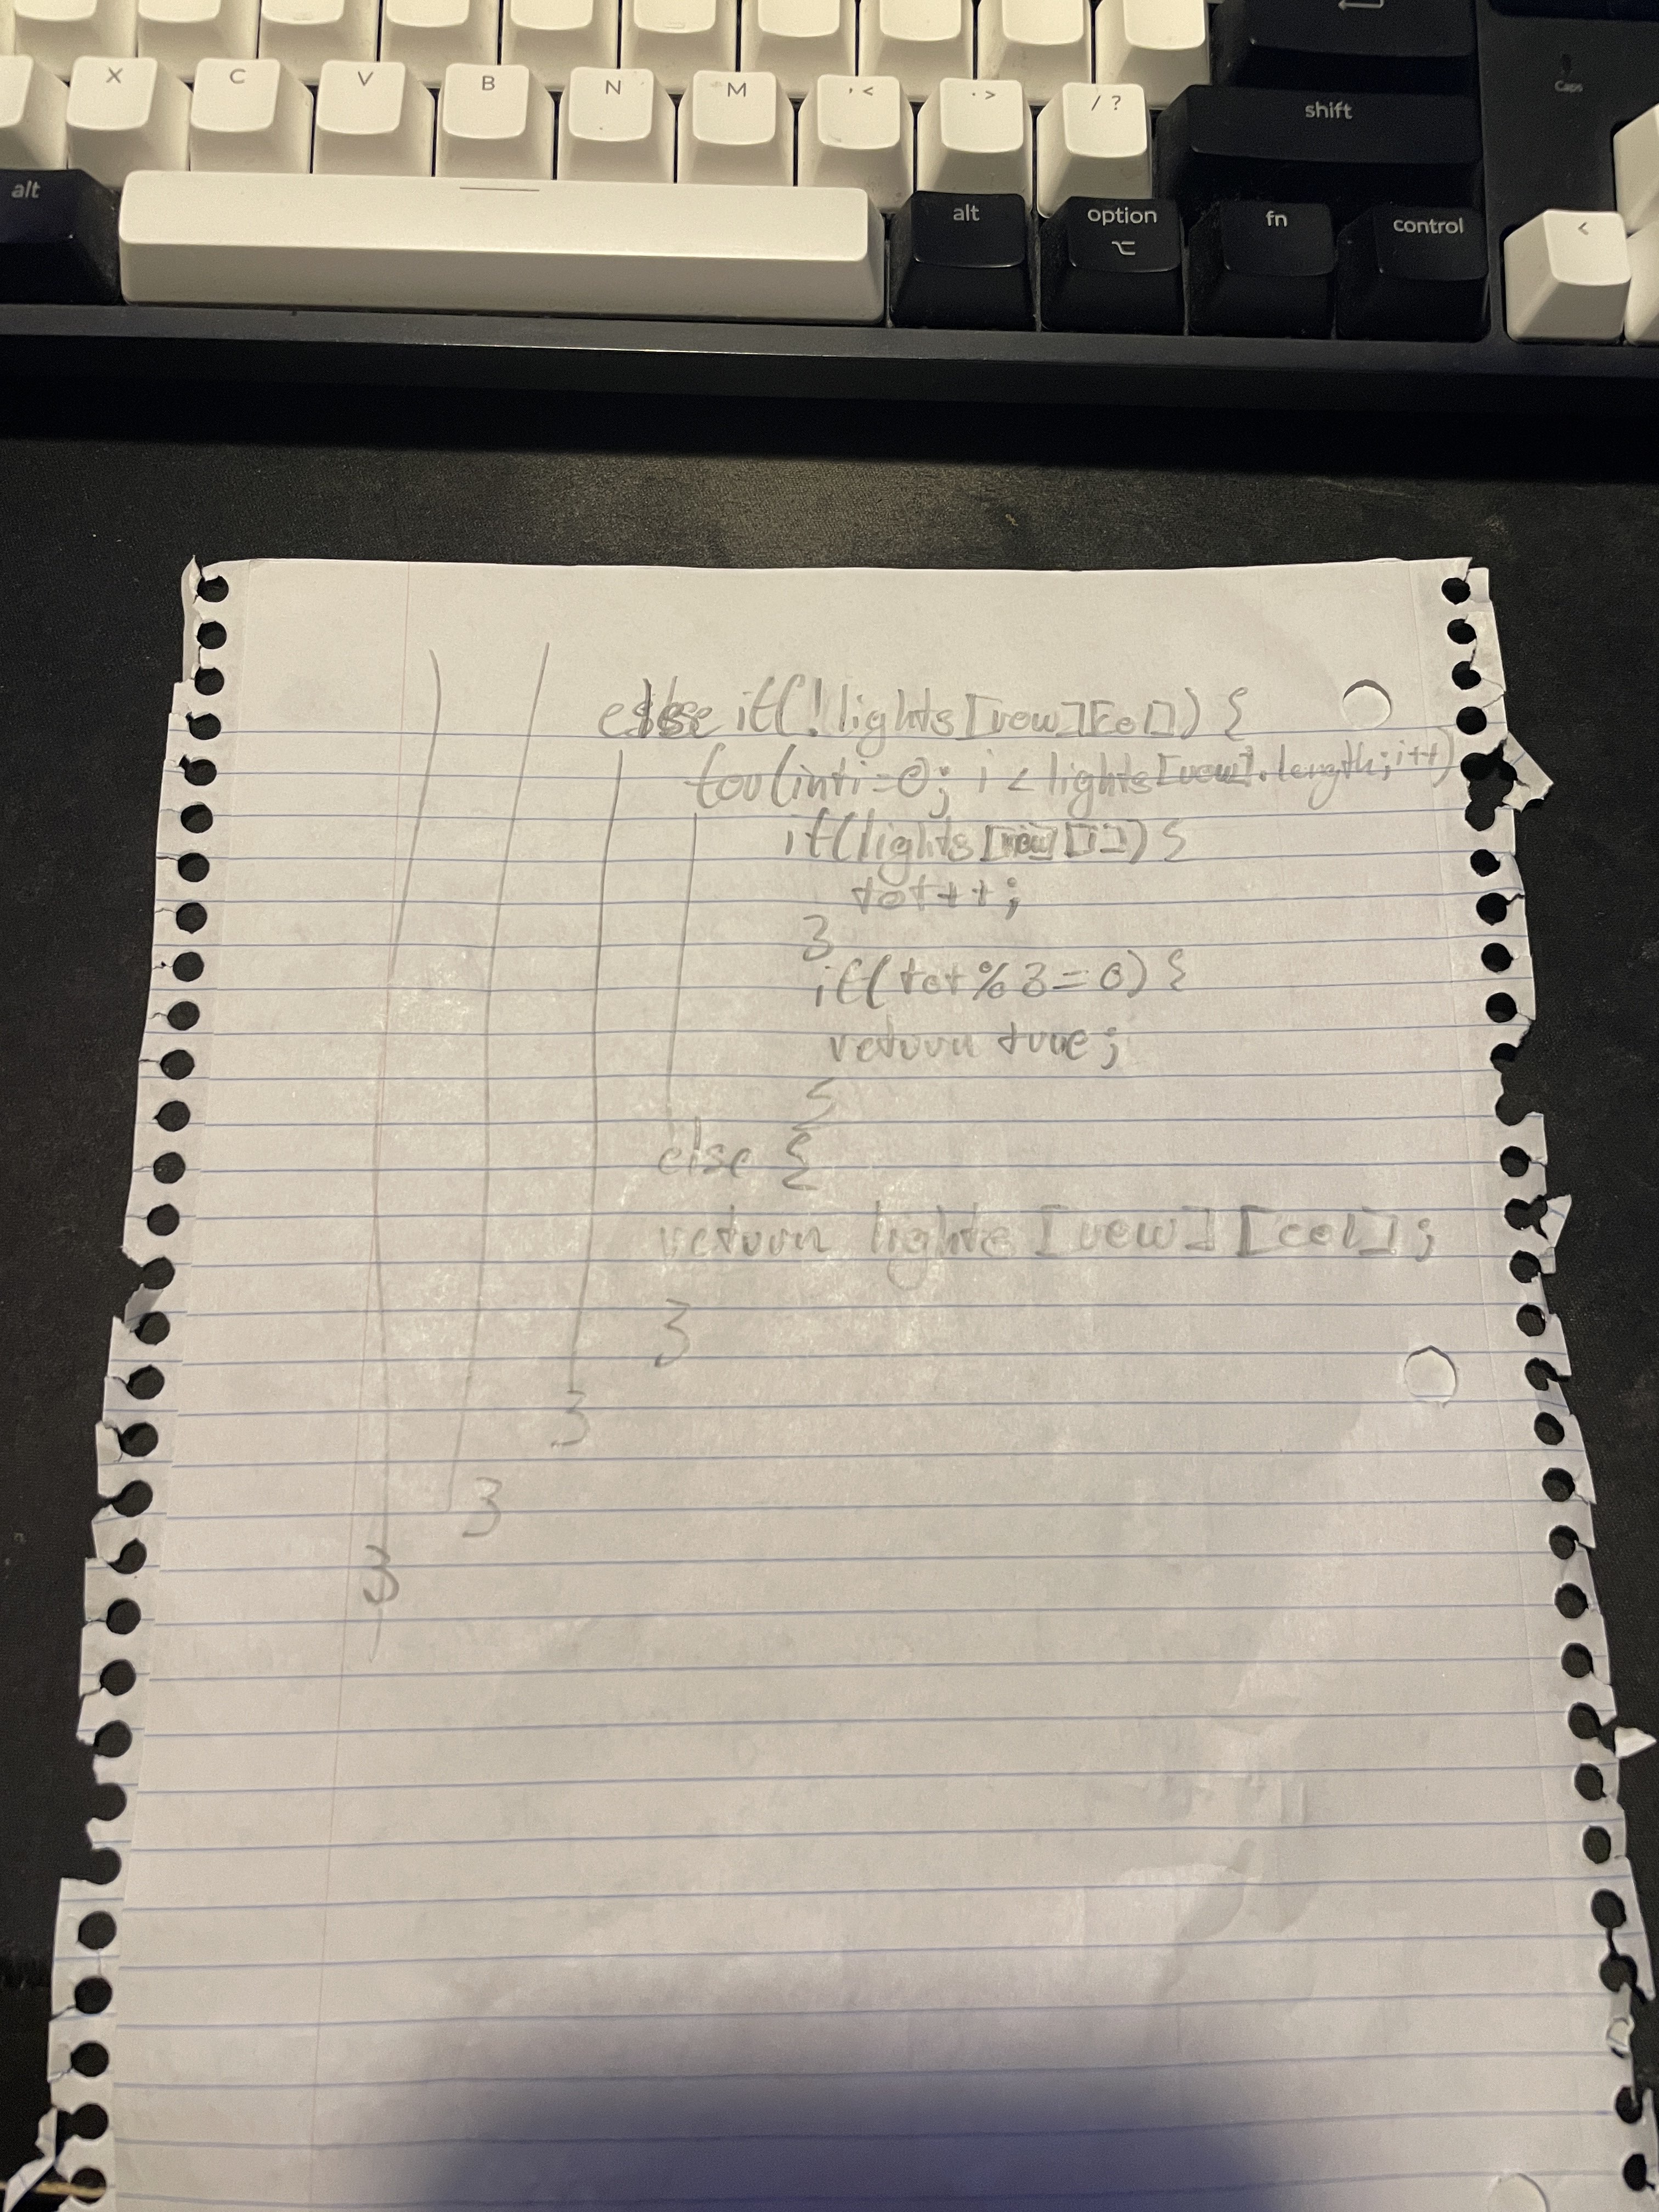 X C V B N M , < . > / ?
shift
Caps
alt
alt
option
⌥
fn
control
<
else if(!lights[row][col]) {
for(int i=0; i < lights[row].length; i++)
if(lights[row][i]) {
tot++;
}
if(tot%3=0) {
return true;
{
else {
return lights [row] [col];
}
}
}
}